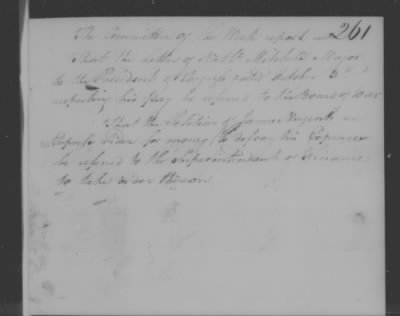 261
The Committee of the Week report
That the letter of Nathl Mitchell Major
to the President of Congress dated October 5th
respecting his pay be referred to the Board of War
That the Petition of James Nugent an
Express rider for money to defray his Expences
be referred to the Superintendant of Finance
to take order thereon